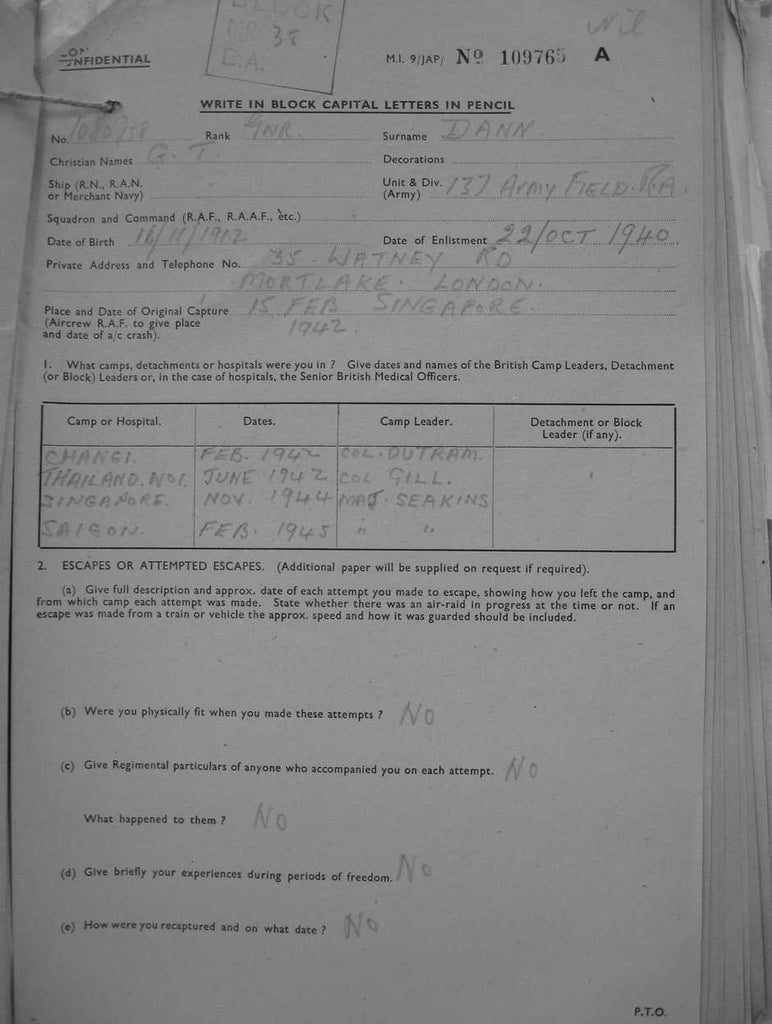 BLOCK
Nº 38
E.A.
Nil
CONFIDENTIAL
M.I. 9/JAP/ Nº 109765 A
WRITE IN BLOCK CAPITAL LETTERS IN PENCIL
No. 1080758 Rank GNR. Surname DANN.
Christian Names G. T. Decorations
Ship (R.N., R.A.N. or Merchant Navy) Unit & Div. (Army) 137 ARMY FIELD. R.A.
Squadron and Command (R.A.F., R.A.A.F., etc.)
Date of Birth 16/11/1912 Date of Enlistment 22/OCT 1940.
Private Address and Telephone No. 35 - WATNEY RD
MORTLAKE. LONDON.
Place and Date of Original Capture 15 FEB SINGAPORE.
(Aircrew R.A.F. to give place 1942.
and date of a/c crash).
1. What camps, detachments or hospitals were you in ? Give dates and names of the British Camp Leaders, Detachment
(or Block) Leaders or, in the case of hospitals, the Senior British Medical Officers.
Camp or Hospital. Dates. Camp Leader. Detachment or Block Leader (if any).
CHANGI. FEB. 1942 COL. OUTRAM.
THAILAND. No1. JUNE 1942 COL GILL.
SINGAPORE. NOV. 1944 MAJ. SEAKINS
SAIGON. FEB. 1945 " "
2. ESCAPES OR ATTEMPTED ESCAPES. (Additional paper will be supplied on request if required).
(a) Give full description and approx. date of each attempt you made to escape, showing how you left the camp, and
from which camp each attempt was made. State whether there was an air-raid in progress at the time or not. If an
escape was made from a train or vehicle the approx. speed and how it was guarded should be included.
(b) Were you physically fit when you made these attempts ? NO
(c) Give Regimental particulars of anyone who accompanied you on each attempt. NO
What happened to them ? NO
(d) Give briefly your experiences during periods of freedom. NO
(e) How were you recaptured and on what date ? NO
P.T.O.